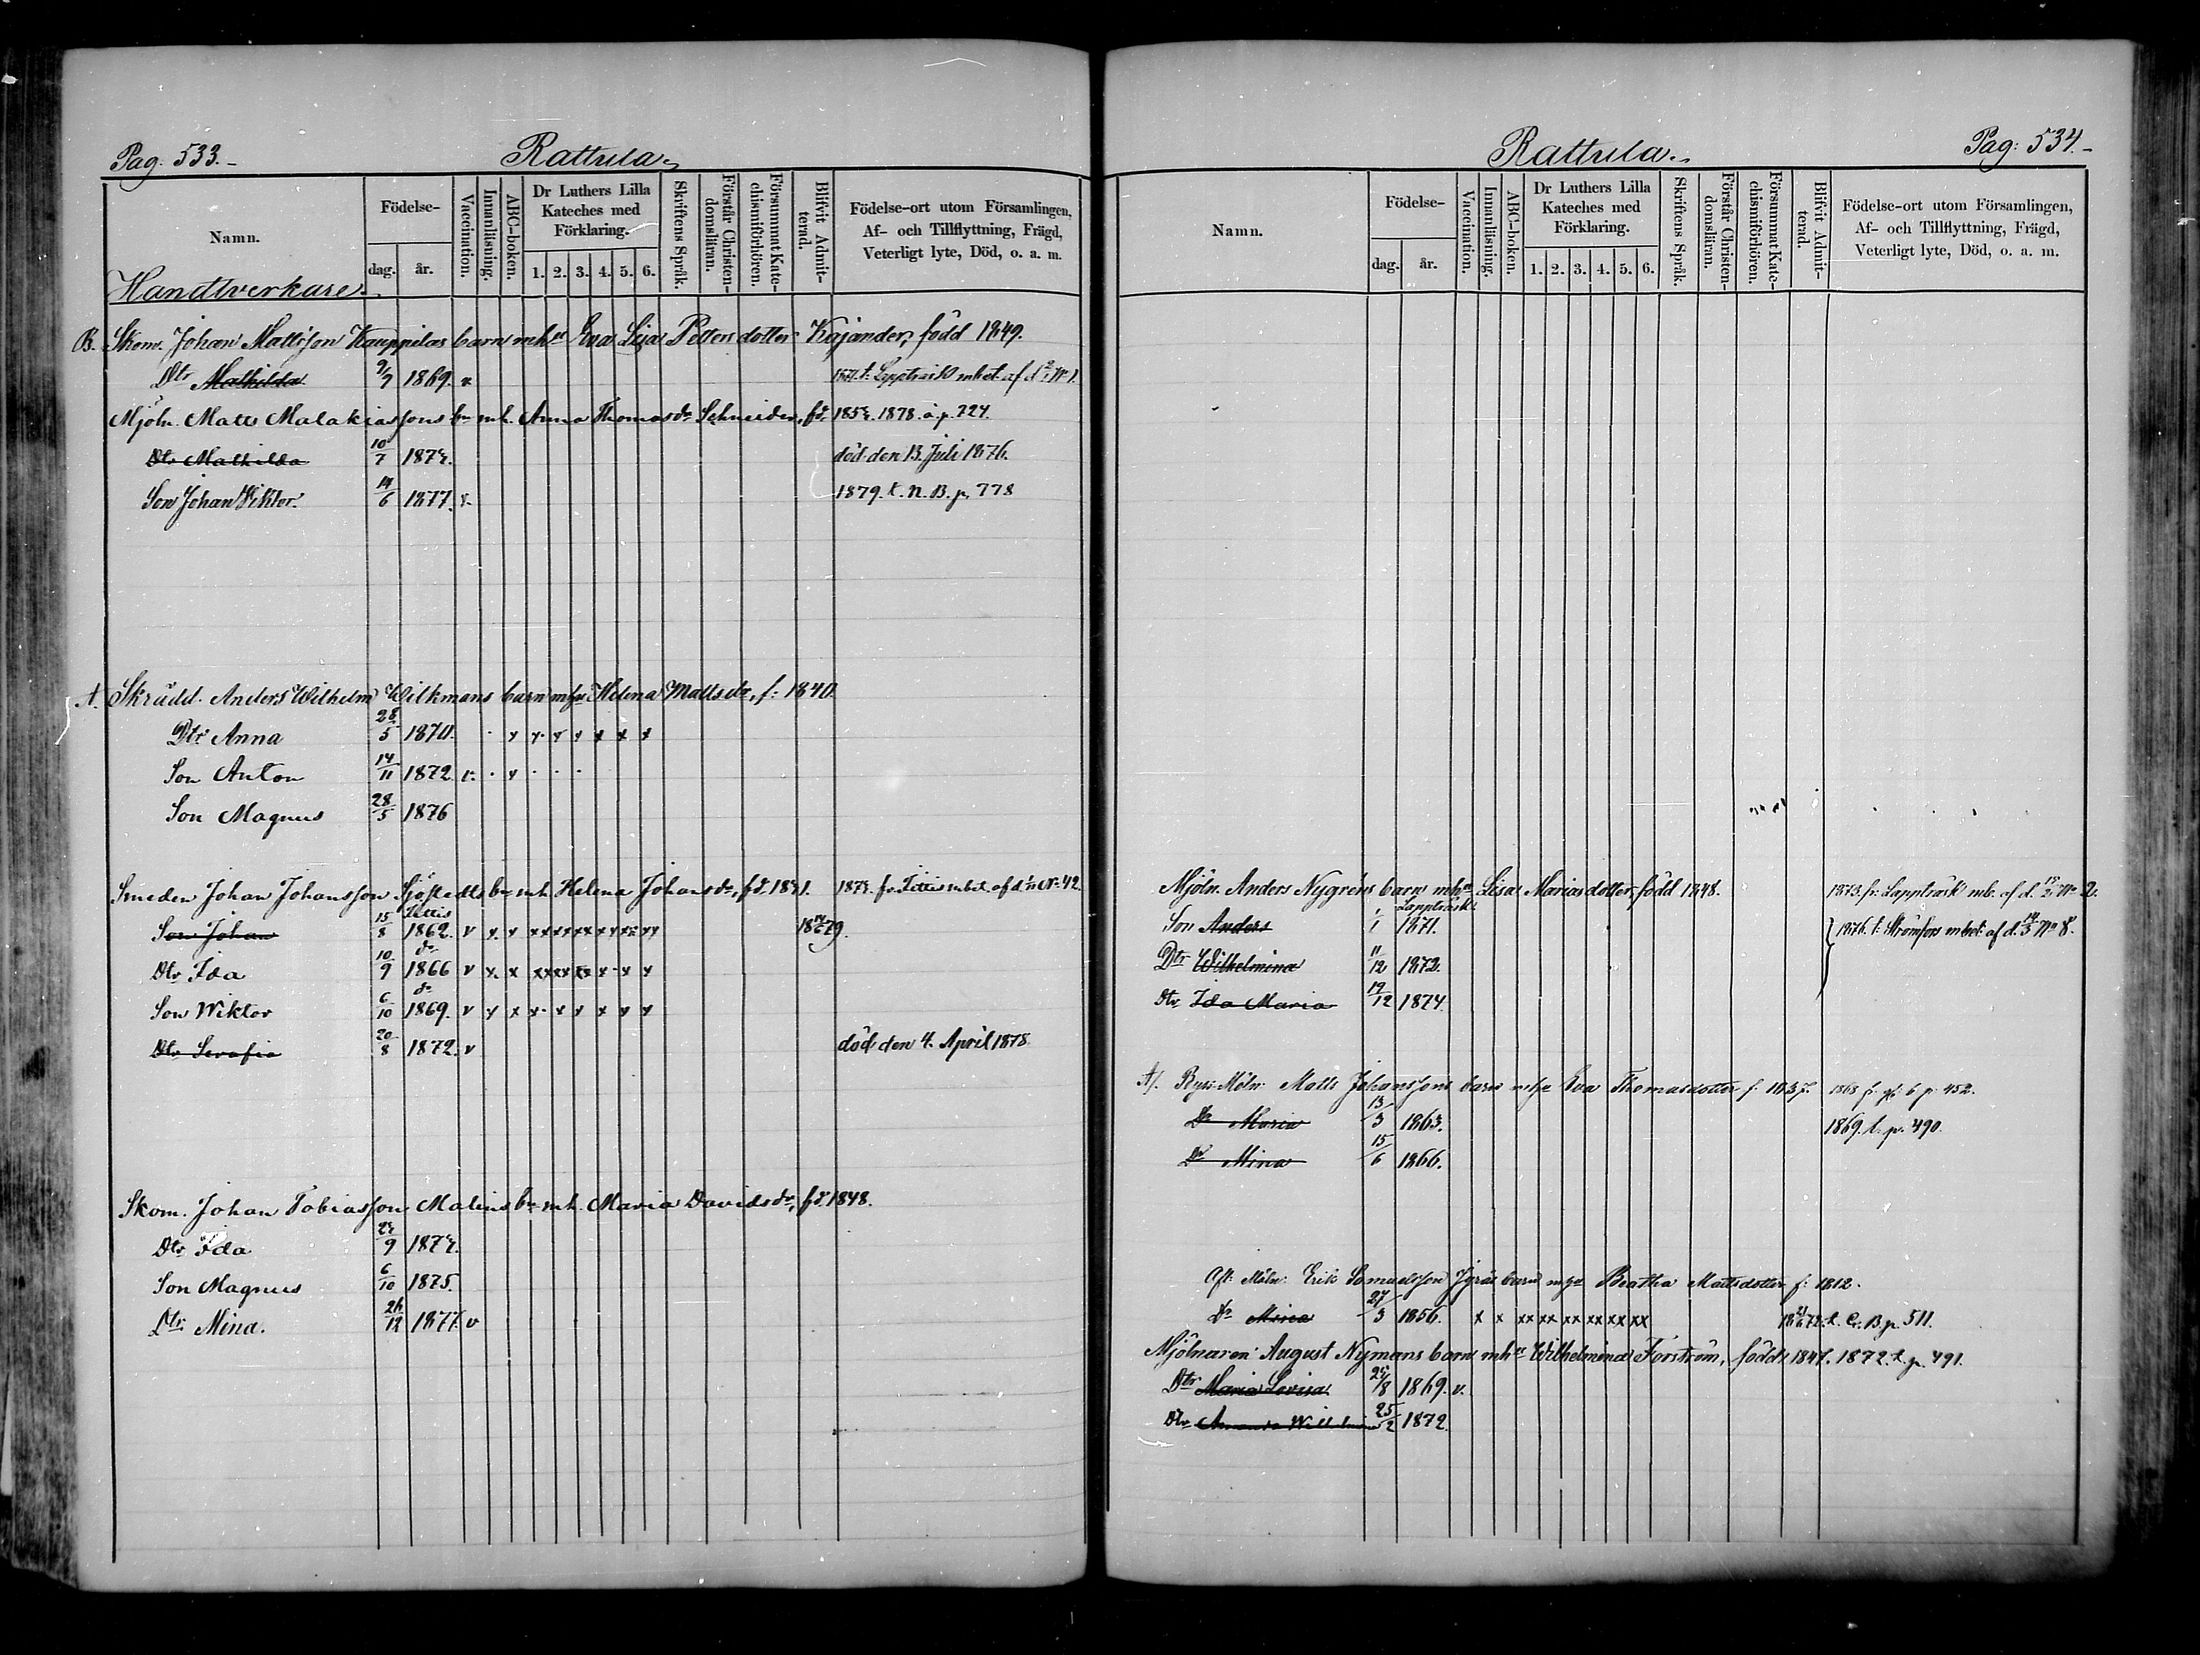 Pag. 533.
Rattula.
Namn.
Födelse-
dag.
år.
Vaccination.
Innanläsning.
ABC-boken.
Dr Luthers Lilla Kateches med Förklaring.
1. 2. 3. 4. 5. 6.
Skriftens Språk.
Förstår Christendomsläran.
Försummat Katechismiförhören.
Blifvit Admitterad.
Födelse-ort utom Församlingen,
Af- och Tillflyttning, Frägd,
Veterligt lyte, Död, o. a. m.
Handtverkare.
B. Skom. Johan Mattsson Kauppilas barn mhu Eva Lisa Pettersdotter Kajander, född 1849.
Dtr Mathilda 9/9 1869. v
Mjöln. Matts Malakiassons bn mh. Anna Thomasdr Schneider, fd. 1878. å p. 724.
Dtr Mathilda 10/7 död den 13. Juli 1876.
Son Johan Viktor. 14/6 1877. v. 1879. t. N. B. p. 778
A. Skrädd. Anders Wilhelm Wilkmans barn mhu Helena Mattsdr, f: 1840.
Dtr Anna 28/5 1870. x x x x x x x
Son Anton 14/11 1872 v. x
Son Magnus 28/5 1876
Smeden Johan Johansson Sjöstedts bn mh. Helena Johansdr, fd. fr. Littis mbet af
Littis
Son Johan 15/8 1862. v x x xx xx xx xx xx xx
dr
Dtr Ida 10/9 1866 v x x xx xx xx x x x
dr
Son Wiktor 6/10 1869. v x x x x x x x x
Dtr Serafia 20/8 1872. v död den 4. April 1878.
Skom. Johan Tobiasson Malins bn mh. Maria Davidsdr, fd. 1848.
Dtr Ida
Son Magnus 6/10 1875.
Dtr Mina. 26/12 1877. v
Rattula.
Pag: 534.
Namn.
Födelse-
dag.
år.
Vaccination.
Innanläsning.
ABC-boken.
Dr Luthers Lilla Kateches med Förklaring.
1. 2. 3. 4. 5. 6.
Skriftens Språk.
Förstår Christendomsläran.
Försummat Katechismiförhören.
Blifvit Admitterad.
Födelse-ort utom Församlingen,
Af- och Tillflyttning, Frägd,
Veterligt lyte, Död, o. a. m.
Mjöln. Anders Nygréns barn mhu Lisa Mariasdotter, född 1848. 1873. fr. Lappträsk mb. af d. No 2.
Lappträsk
Son Anders 1/1 1871. 1876. t. Strömfors mbet af d. 14/3 No 8.
Dtr Wilhelmina 11/12 1872.
Dtr Ida Maria 19/12 1874.
A/. Möln: Matts Johanssons barn mhu Eva Thomasdotter f. 1837. 1868 fr. p. 452.
Dr Maria 13/3 1863. 1869. t. p. 490.
Dr Mina 15/6 1866.
Afl. Möln: Erik Samuelsson barn mhu Beatha Mattsdotter f: 1812.
Dr Mina 27/3 1856. x x xx xx xx xx xx xx B. p. 511.
Mjölnaren August Nymans barn mhu Wilhelmina Forström, född 1847. 1872. t. p. 491.
Dtr Maria Lovisa 1869. v.
Dtr 25/2 1872.